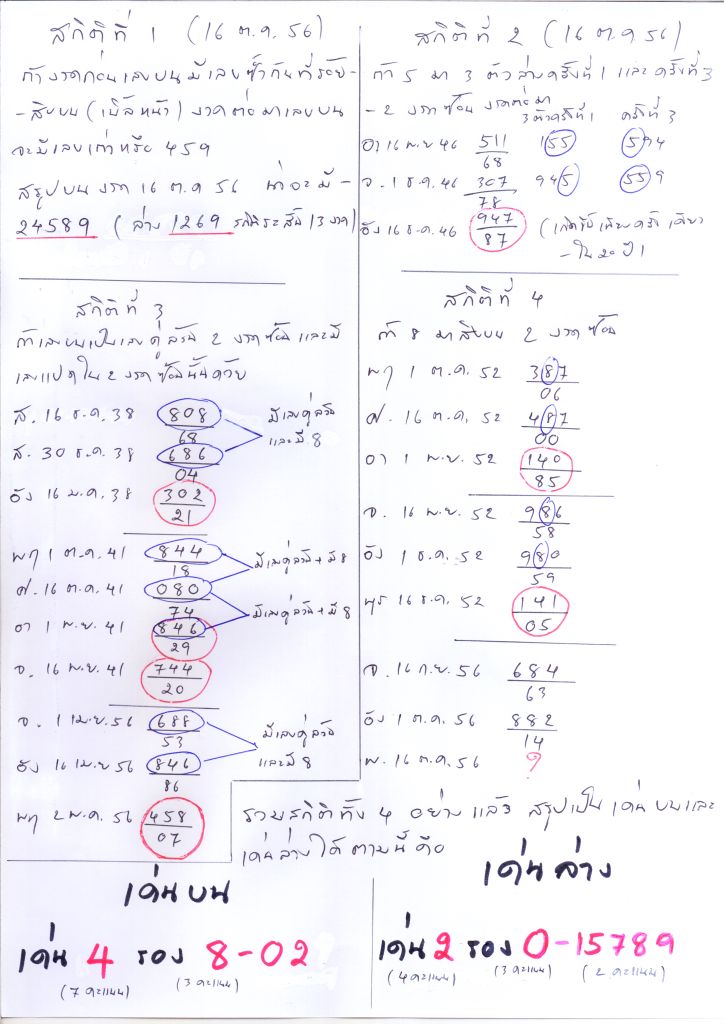 สถิติที่ 1 (16 ต.ค. 56)
ถ้างวดก่อนเลขบนมีเลขซ้ำกันที่ร้อย-
-สิบบน (เบิ้ลหน้า) งวดต่อมาเลขบน
จะมีเลขเก่าหรือ 459
สรุปบนงวด 16 ต.ค 56 น่าจะมี -
24589 (ล่าง 1269 13 งวด)
สถิติที่ 2 (16 ต.ค 56)
ถ้า 5 มา 3 ตัวล่างครั้งที่ 1 และครั้งที่ 3
- 2 งวดซ้อน งวดต่อมา
3 ตัวครั้งที่ 1 ครั้งที่ 3
อา 16 พ.ย 46 511 155 594
68
จ. 1 ธ.ค. 46 307 945 559
78
อัง 16 ธ.ค. 46 947
87
(เกิดขึ้นเพียงครั้งเดียว
- ใน 20 ปี)
สถิติที่ 3
ถ้าเลขบนเป็นเลขคู่ล้วน 2 งวดซ้อนและมี
เลขแปดใน 2 งวดซ้อนนั้นด้วย
ส. 16 ธ.ค. 38 808
68
ส. 30 ธ.ค. 38 686
04
มีเลขคู่ล้วน
และมี 8
อัง 16 ม.ค. 38 302
21
พฤ 1 ต.ค. 41 844
18
มีเลขคู่ล้วน + มี 8
ศ. 16 ต.ค. 41 080
74
มีเลขคู่ล้วน + มี 8
อา 1 พ.ย. 41 846
29
จ. 16 พ.ย. 41 744
20
จ. 1 เม.ย. 56 688
53
มีเลขคู่ล้วน
และมี 8
อัง 16 เม.ย 56 846
86
พฤ 2 พ.ค. 56 458
07
สถิติที่ 4
ถ้า 8 มาสิบบน 2 งวดซ้อน
พฤ 1 ต.ค. 52 387
06
ศ. 16 ต.ค. 52 487
00
อา 1 พ.ย. 52 140
85
จ. 16 พ.ย. 52 986
58
อัง 1 ธ.ค. 52 980
59
พุธ 16 ธ.ค. 52 141
05
จ. 16 ก.ย. 56 684
63
อัง 1 ต.ค. 56 882
14
พ. 16 ต.ค. 56 ?
รวมสถิติทั้ง 4 อย่างแล้ว สรุปเป็น เด่นบนและ
เด่นล่างได้ ตามนี้ คือ
เด่นบน
เด่น 4 รอง 8-02
(7 คะแนน) (3 คะแนน)
เด่นล่าง
เด่น 2 รอง 0-15789
(4 คะแนน) (3 คะแนน) (2 คะแนน)